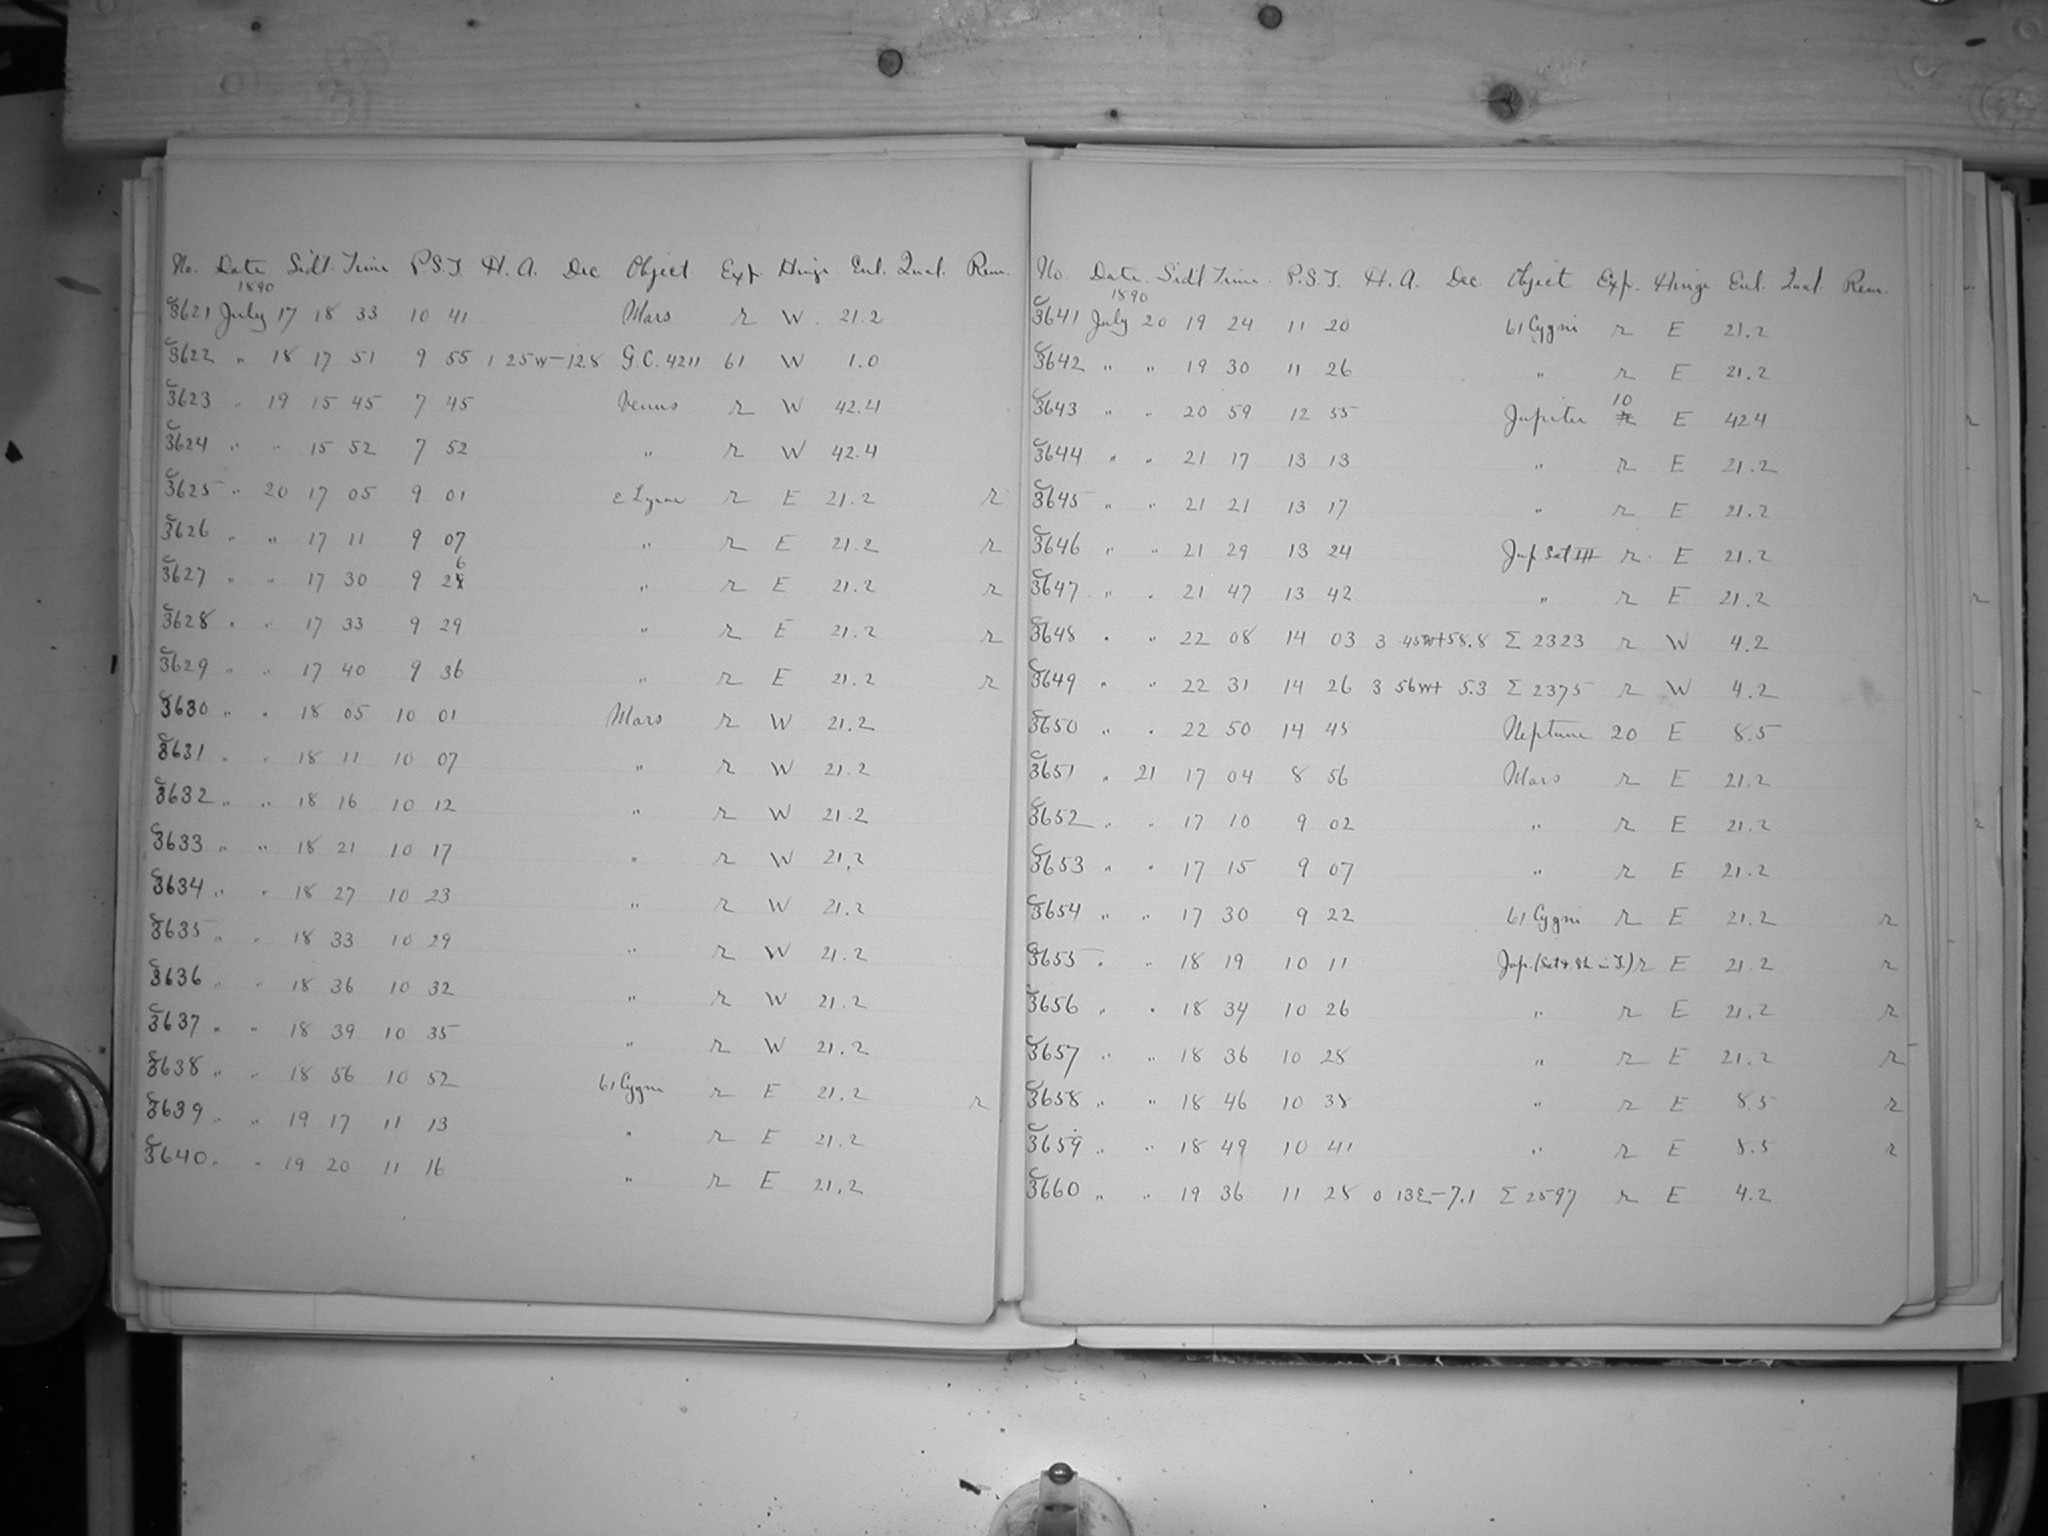 No. Date Sidl. Time P.S.T. H. A. Dec. Object Exp. Hinge Enl. Qual. Rem.
1890
3621 July 17 18 33 10 41 Mars r W. 21.2
3622 " 18 17 51 9 55 1 25W -12.8 G.C. 4211 61 W 1.0
3623 " 19 15 45 7 45 Venus r W 42.4
3624 " " 15 52 7 52 " r W 42.4
3625 " 20 17 05 9 01 ε Lyrae r E 21.2 r
3626 " " 17 11 9 07 " r E 21.2 r
3627 " " 17 30 9 26 " r E 21.2 r
3628 " " 17 33 9 29 " r E 21.2 r
3629 " " 17 40 9 36 " r E 21.2 r
3630 " " 18 05 10 01 Mars r W 21.2
3631 " " 18 11 10 07 " r W 21.2
3632 " " 18 16 10 12 " r W 21.2
3633 " " 18 21 10 17 " r W 21.2
3634 " " 18 27 10 23 " r W 21.2
3635 " " 18 33 10 29 " r W 21.2
3636 " " 18 36 10 32 " r W 21.2
3637 " " 18 39 10 35 " r W 21.2
3638 " " 18 56 10 52 61 Cygni r E 21.2 r
3639 " " 19 17 11 13 " r E 21.2
3640 " " 19 20 11 16 " r E 21.2
No. Date Sidl Time P.S.T. H. A. Dec. Object Exp. Hinge Enl. Qual. Rem.
1890
3641 July 20 19 24 11 20 61 Cygni r E 21.2
3642 " " 19 30 11 26 " r E 21.2
3643 " " 20 59 12 55 Jupiter 10 E 42.4 r
3644 " " 21 17 13 13 " r E 21.2
3645 " " 21 21 13 17 " r E 21.2
3646 " " 21 29 13 24 Jup Sat III r E 21.2
3647 " " 21 47 13 42 " r E 21.2 r
3648 " " 22 08 14 03 3 45W +58.8 Σ 2323 r W 4.2
3649 " " 22 31 14 26 3 56W + 5.3 Σ 2375 r W 4.2
3650 " " 22 50 14 45 Neptune 20 E 8.5
3651 " 21 17 04 8 56 Mars r E 21.2
3652 " " 17 10 9 02 " r E 21.2 r
3653 " " 17 15 9 07 " r E 21.2
3654 " " 17 30 9 22 61 Cygni r E 21.2 r
3655 " " 18 19 10 11 Jup. (Sat & Sh. in T.) r E 21.2 r
3656 " " 18 34 10 26 " r E 21.2 r
3657 " " 18 36 10 28 " r E 21.2 r
3658 " " 18 46 10 38 " r E 8.5 r
3659 " " 18 49 10 41 " r E 8.5 r
3660 " " 19 36 11 28 0 13E -7.1 Σ 2597 r E 4.2